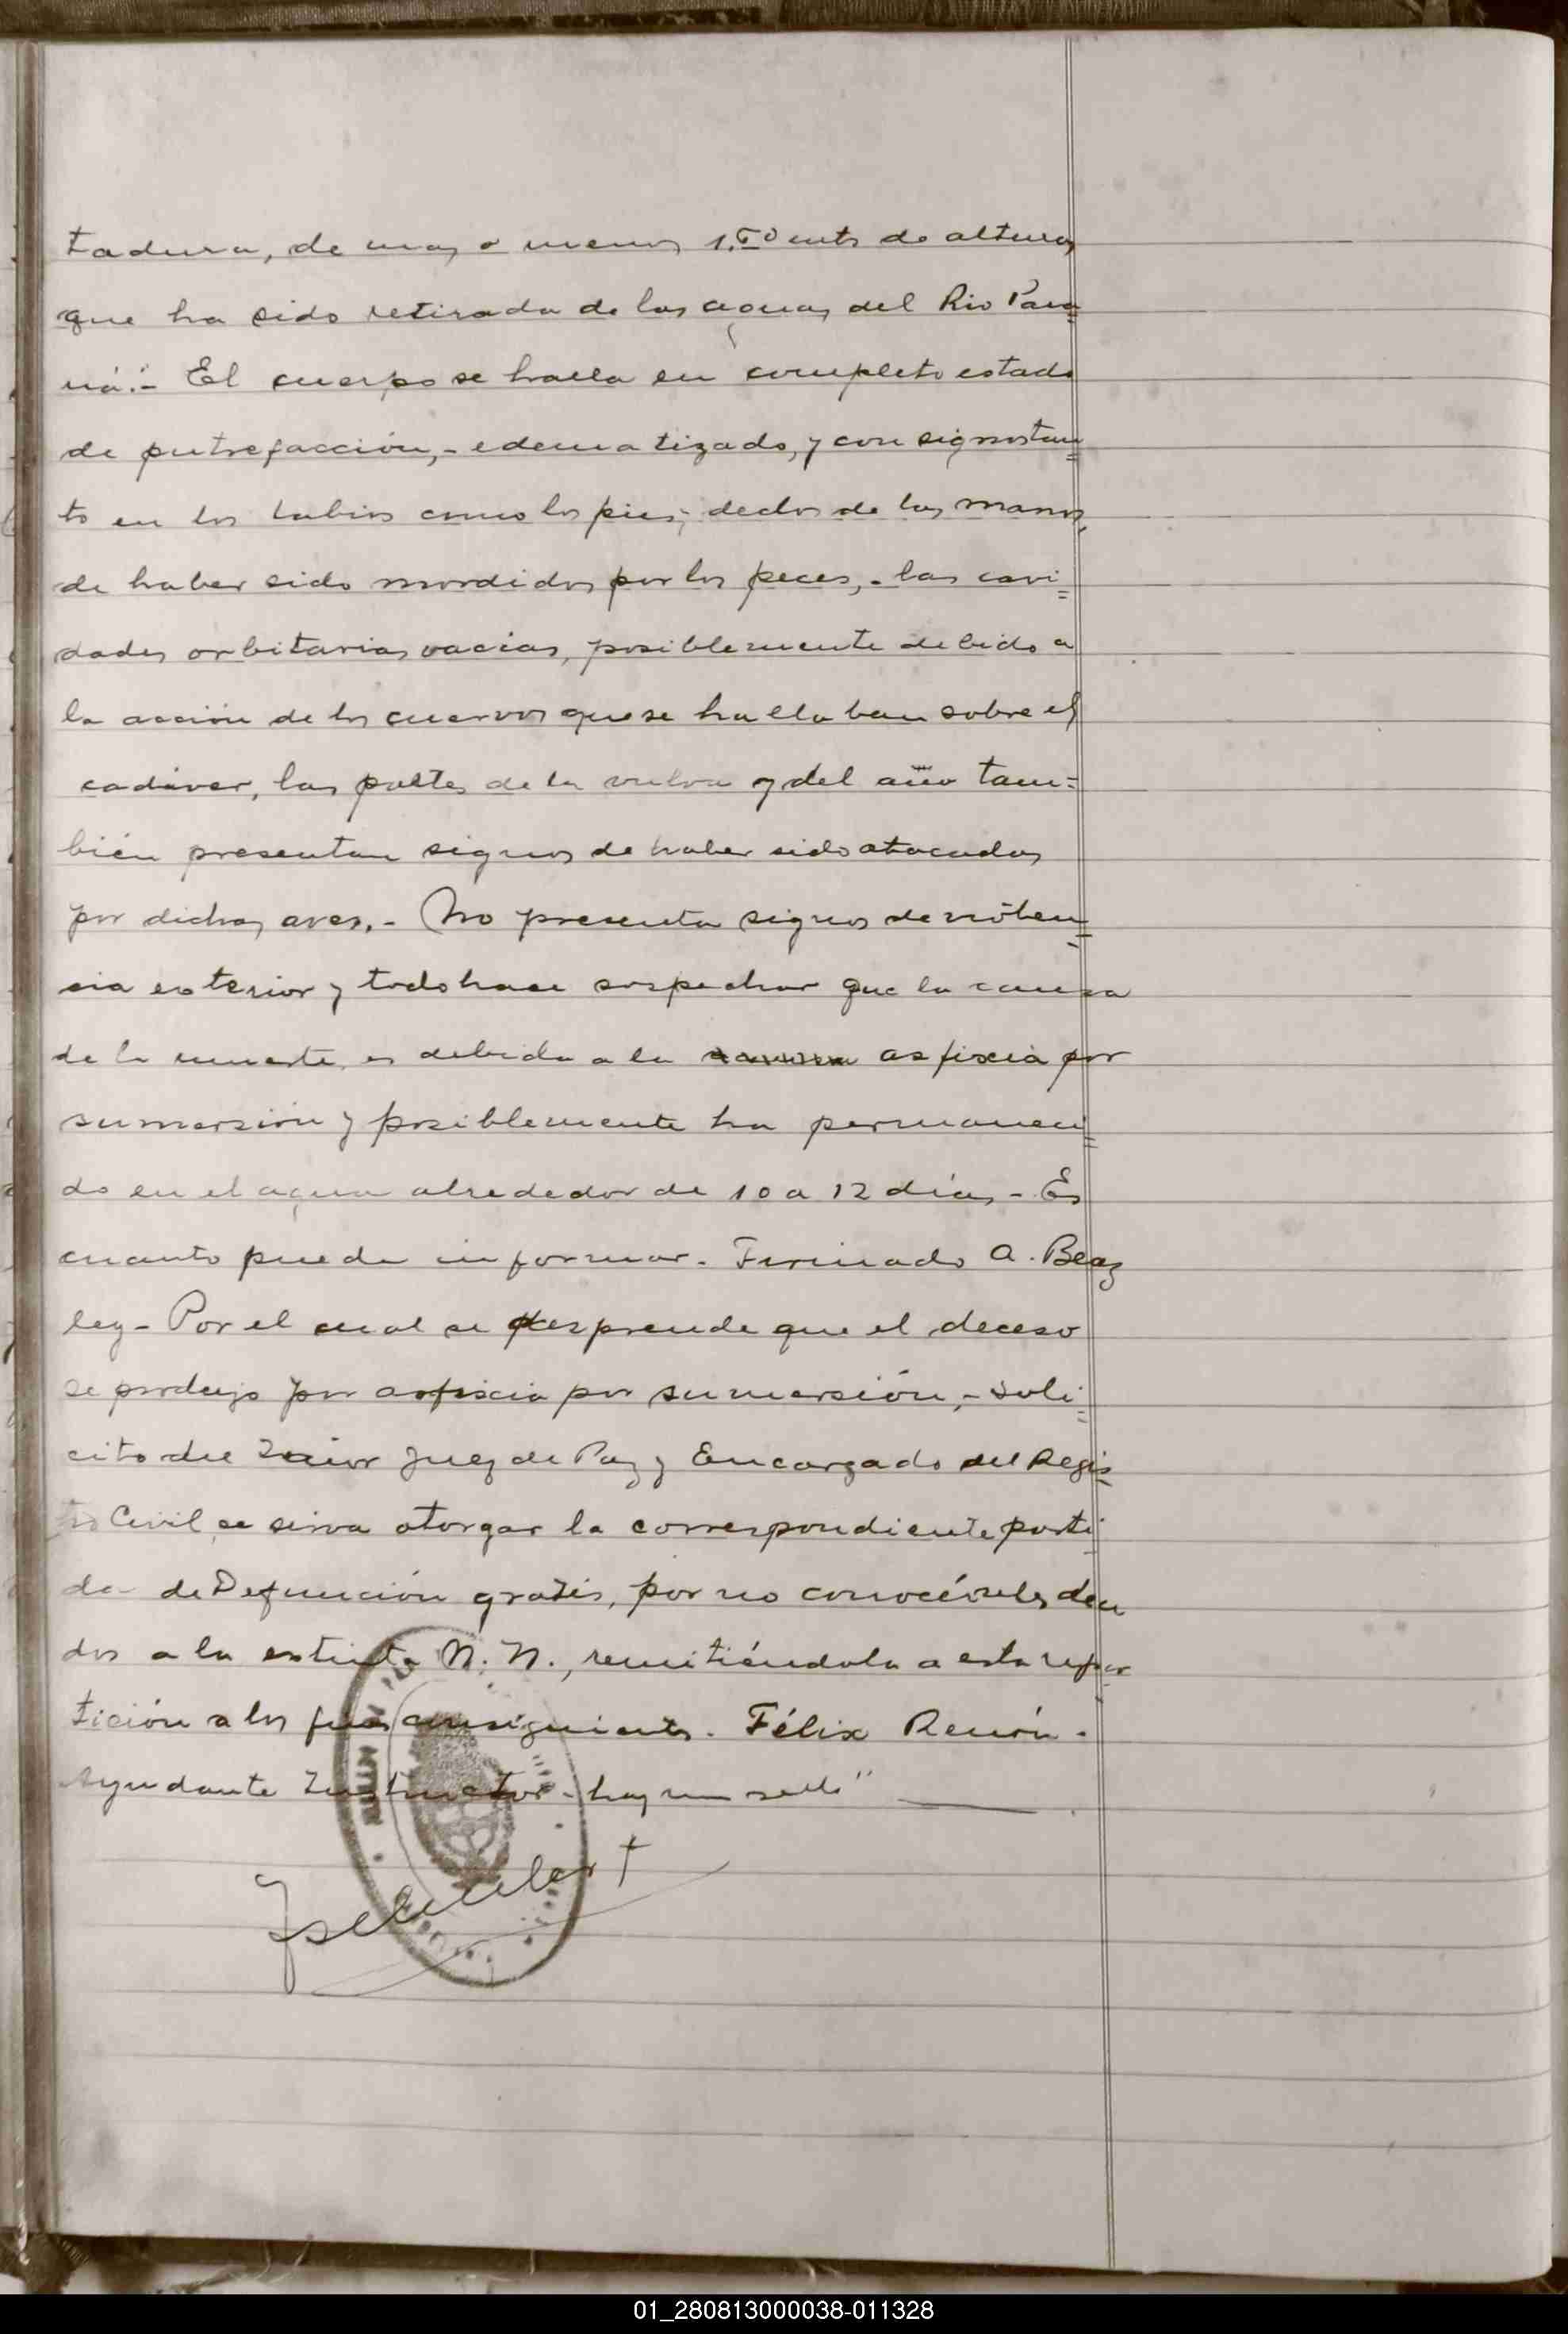 tadura, de mas o menos 1.50 cents de altura,
que ha sido retirada de las aguas del Rio Para=
ná".- El cuerpo se halla en completo estado
de putrefacción,- edematizado, y con signos tan=
to en los labios como los pies, dedos de las manos,
de haber sido mordidos por los peces,- las cavi=
dades orbitarias vacias, posiblemente debido a
la acción de los cuervos que se hallaban sobre el
cadáver, las partes de la vulva y del ano tam=
bién presentan signos de haber sido atacadas
por dichas aves.- No presenta signos de violen=
cia exterior y todo hace sospechar que la causa
de la muerte, es debida a la asfixia por
sumersión y posiblemente ha permaneci=
do en el agua alrededor de 10 a 12 días - Es
cuanto puedo informar. Firmado A. Beaz
ley - Por el cual se desprende que el deceso
se produjo por asfixia por sumersión,- soli=
cito del Señor Juez de Paz y Encargado del Regis=
tro Civil se sirva otorgar la correspondiente parti=
da de Defunción gratis, por no conocérseles deu
dos a la extinta N. N., remitiéndola a esta repar=
tición a los fines consiguientes. Félix Renón.
Ayudante Instructor - hay un sello"
01_280813000038-011328